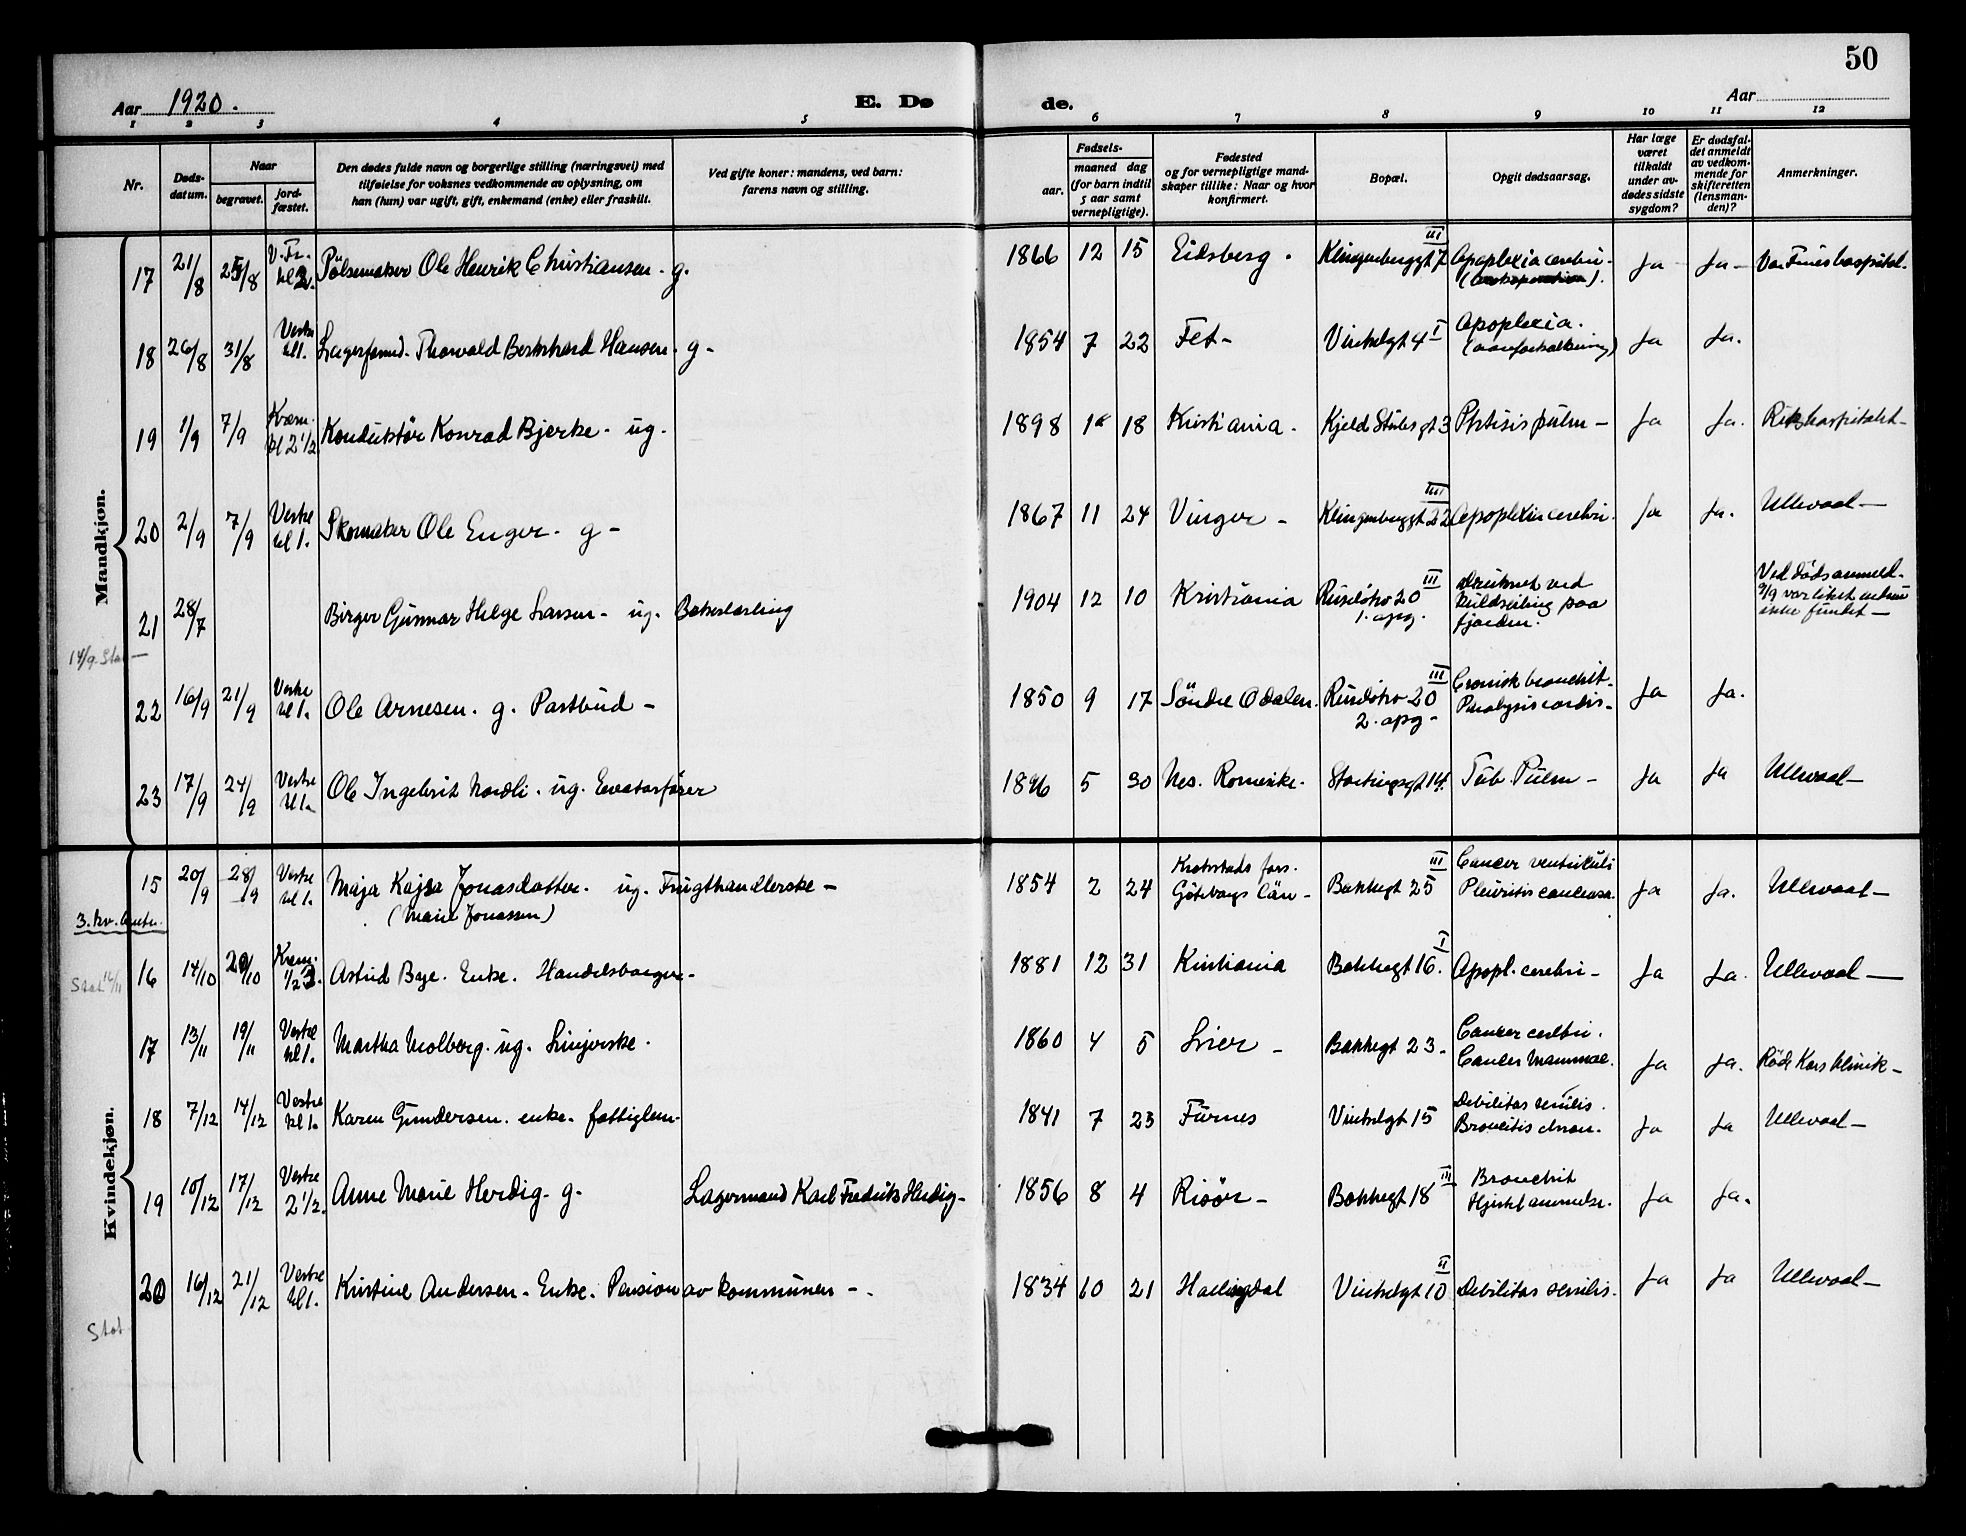 50
Aar 1920.
E. Dø
de.
Aar
1 2 3 4 5 6 7 8 9 10 11 12
Nr.
Døds-
datum.
Naar
begravet.
jord-
fæstet.
Den dødes fulde navn og borgerlige stilling (næringsvei) med
tilføielse for voksnes vedkommende av oplysning, om
han (hun) var ugift, gift, enkemand (enke) eller fraskilt.
Ved gifte koner: mandens, ved barn:
farens navn og stilling.
Fødsels-
aar.
maaned dag
(for barn indtil
5 aar samt
vernepligtige).
Fødested
og for vernepligtige mand-
skaper tillike: Naar og hvor
konfirmert.
Bopæl.
Opgit dødsaarsag.
Har læge
været
tilkaldt
under av-
dødes sidste
sygdom?
Er dødsfal-
det anmeldt
av vedkom-
mende for
skifteretten
(lensman-
den)?
Anmerkninger.
Mandkjøn.
17 21/8 25/8 V. Fr. kl 2. Pølsemaker Ole Henrik Christiansen. g. 1866 12 15 Eidsberg. Klingenberggt 7 III Apoplexia cerebri. Ja Ja Vor Frues hospital.
18 26/8 31/8 Vestre kl 1. Lagerformd. Thorvald Bernhard Hansen. g- 1854 7 22 Fet- Vinkelgt 4 I Apoplexia.
(aareforkalkning) Ja Ja.
19 1/9 7/9 Krem. kl 2 1/2 Konduktør Konrad Bjerke. ug. 1898 18 Kristiania. Kjeld Stubs gt 3 Phtisis pulm- Ja Ja. Rikshospitalet-
20 2/9 7/9 Vestre kl 1. Skomaker Ole Enger. g- 1867 11 24 Vinger- Klingenberggt 22 III Apoplexia cerebri. Ja Ja. Ullevaal-
21 28/7 Birger Gunnar Helge Larsen- ug. Bakerlærling 1904 12 10 Kristiania Ruseløkv 20 III
1. opg. Druknet ved
kuldseiling paa
fjorden. Ved dødsanmeld.
9/9 var liket endnu
ikke fundet-
14/9. Stat-
22 16/9 21/9 Vestre kl 1. Ole Arnesen. g. Postbud- 1850 9 17 Söndre Odalen. Ruseløkv 20 III
2. opg- Cronisk bronchit-
Paralysis cordis- Ja Ja.
23 17/9 24/9 Vestre kl 1. Ole Ingebrit Nordli. ug. Elevatorfører 1896 5 30 Nes. Romerike. Stortingsgt 14. Tub. Pulm- Ja Ja Ullevaal-
Kvindekjøn.
15 20/9 28/9 Vestre kl 1. Maja Kajsa Jonasdatter. ug. Frugthandlerske-
(Marie Jonassen) 1854 2 24 Krokstads fors.
Göteborgs Län- Bakkegt 25 III Cancer ventrikuli
Pleuritis canceros. Ja Ja. Ullevaal-
3. kv.
16 14/10 20/10 Krem. 1/2 2. Astrid Bye. Enke. Handelsborger- 1881 12 31 Kristiania Bakkegt 16. I Apopl. cerebri- Ja Ja. Ullevaal-
Stat 14/11
17 13/11 19/11 Vestre kl 1. Martha Molberg. ug. Linjerske. 1860 4 5 Lier- Bakkegt 23- Cancer cerebri.
Cancer Mammae. Ja Ja. Røde Kors klinik-
18 7/12 14/12 Vestre kl 1. Karen Gundersen. enke. fattiglem- 1841 7 23 Furnes Vinkelgt 15 Debilitas senilis.
Broncitis chron. Ja Ja Ullevaal-
19 10/12 17/12 Vestre 2 1/2. Anne Marie Herdig. g. Lagermand Karl Fredrik Herdig- 1856 8 4 Risör- Bakkegt 18 III Bronchit
Hjertelammelse. Ja Ja.
20 16/12 21/12 Vestre kl 1. Kristine Andersen. Enke. Pension av kommunen-. 1834 10 21 Hallingdal Vinkelgt 10 II Debilitas senilis. Ja Ja Ullevaal-
Stat